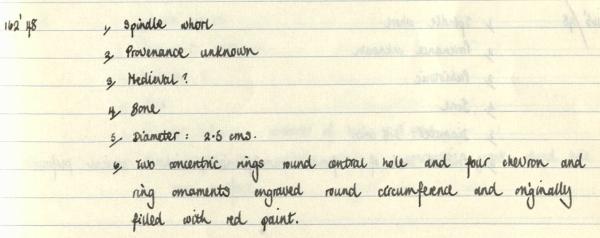 162'48 1, Spindle whorl
2, Provenance unknown
3, Medieval?
4, Bone
5, Diameter: 2.5 cms.
6, Two concentric rings round central hole and four chevron and
ring ornaments engraved round circumference and originally
filled with red paint.